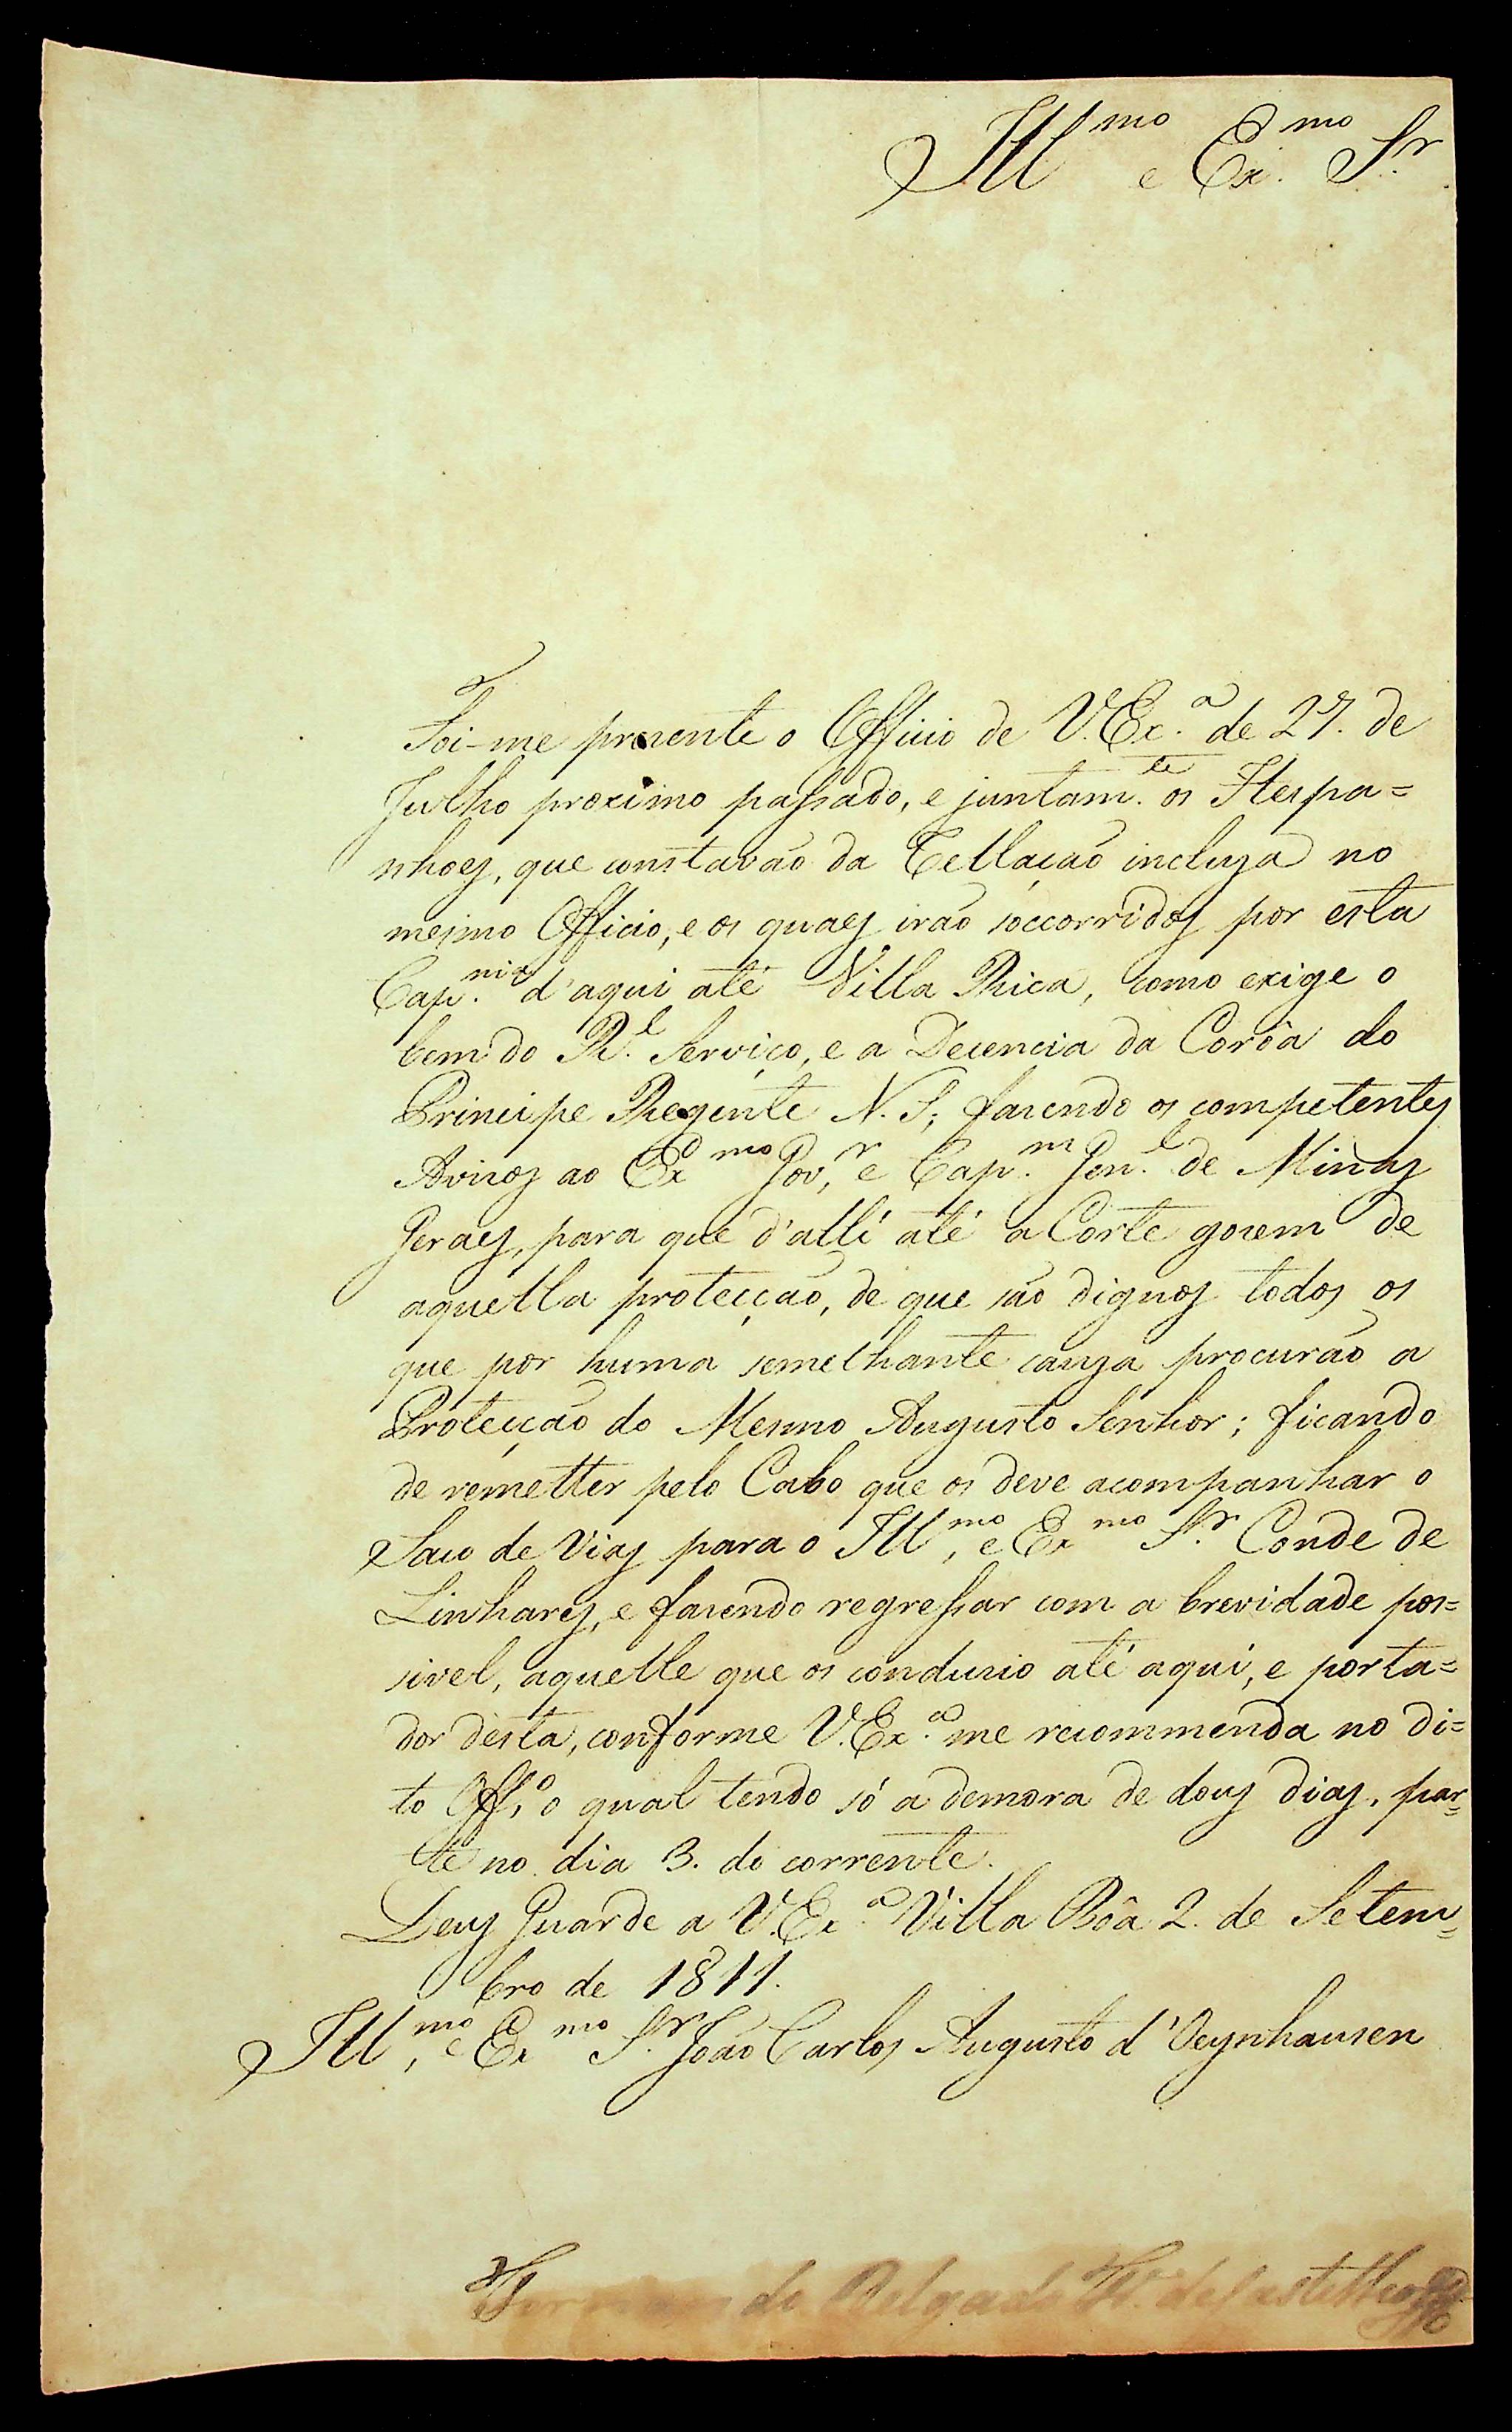 Ill.mo e Ex.mo S.r
Foi-me prezente o Officio de V. Ex.a de 27. de
Julho proximo passado, e juntam.te os Hespa=
nhoes, que constavão da Rellação incluza no
mesmo Officio, e os quaes irão soccorridos por esta
Cap.nia d'aqui até Villa Rica, como exige o
bem do R.l Serviço, e a Decencia da Corôa do
Principe Regente N. S.; fazendo os competentes
Avizos ao Ex.mo Gov.r e Cap.m Gen.l de Minas
Geraes, para que d'alli até a Corte gozem de
aquella protecção, de que são dignos todos os
que por huma semelhante cauza procurão a
Protecção do Mesmo Augusto Senhor; ficando
de remetter pelo Cabo que os deve acompanhar o
Saco de Vias para o Ill.mo, e Ex.mo S.r Conde de
Linhares, e fazendo regressar com a brevidade pos=
sivel, aquelle que os conduzio até aqui, e porta=
dor desta, conforme V. Ex.a me recommenda no di=
to Off.o, o qual tendo só a demora de dous dias, par=
te no dia 3. do corrente.
Deus Guarde a V. Ex.a Villa Bôa 2. de Setem=
bro de 1811.
Ill.mo, e Ex.mo S.r João Carlos Augusto d'Oeynhausen
Fernando Delgado Fr. de Castilho